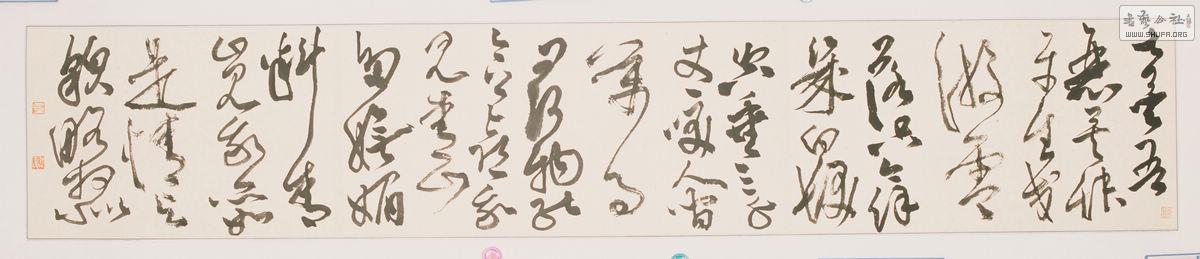 甚矣吾
衰矣悵
平生交
游零
落只今餘
幾白髮
空垂三千
丈一笑人間
萬事
問何物能
令公喜我
見青山
多嫵媚
料青
山見我應如
是情與
貌略相似
书艺公社
WWW.SHUFA.ORG